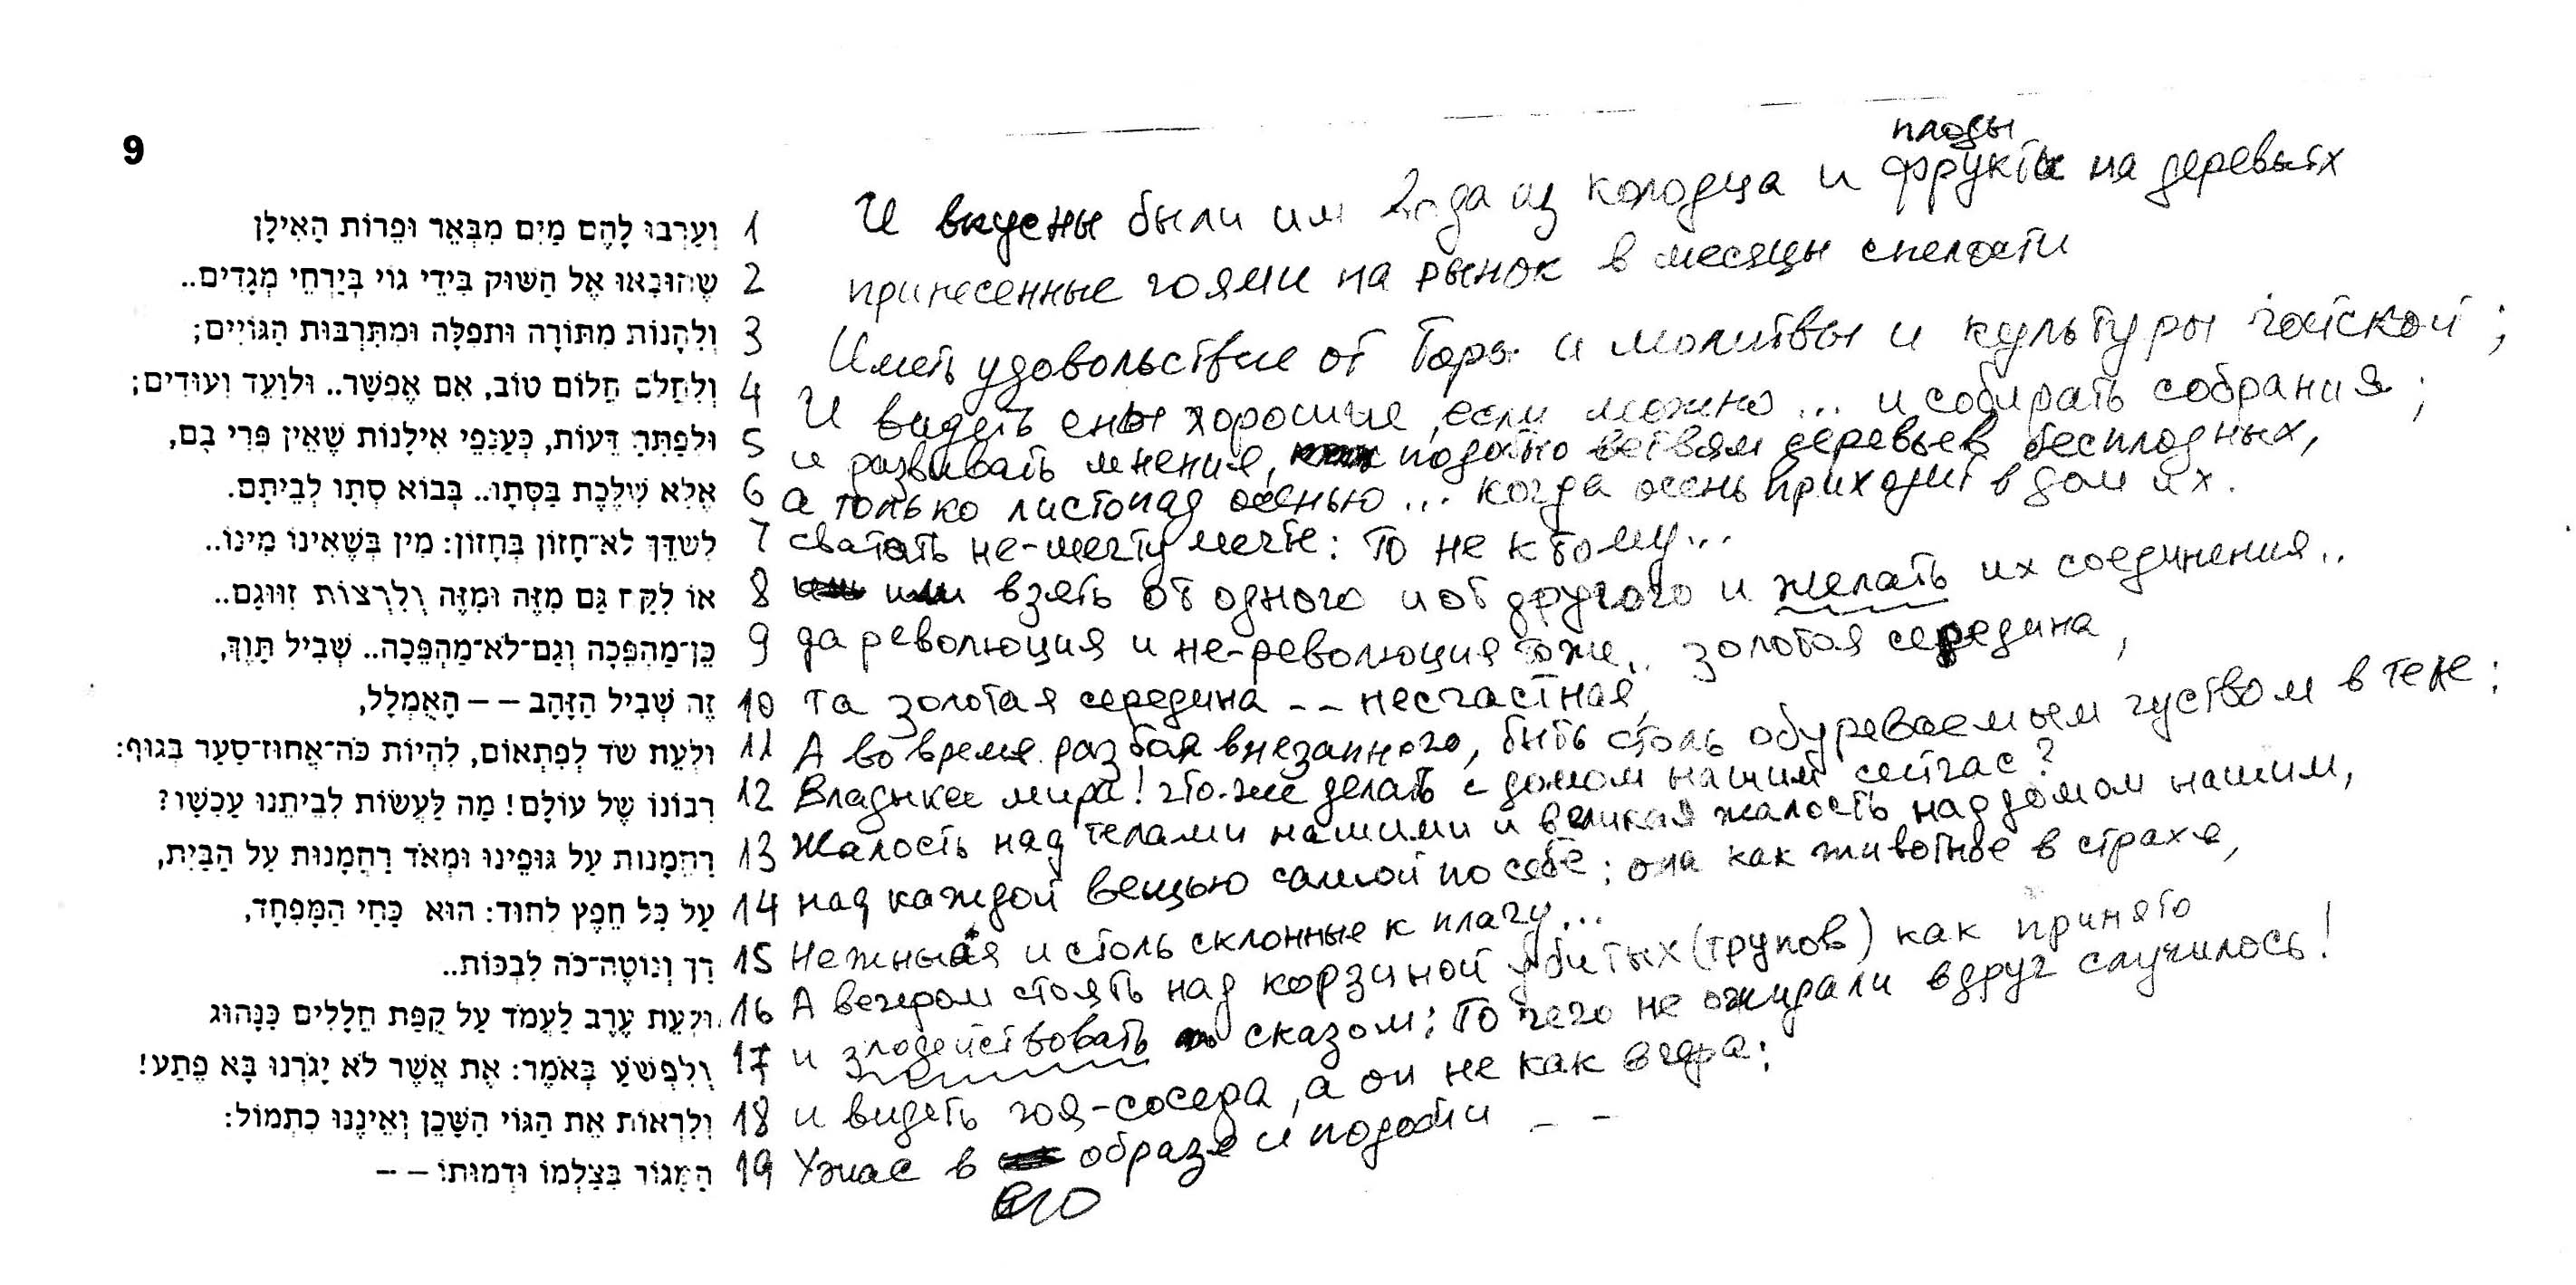 9
וְעָרְבוּ לָהֶם מַיִם מִבְּאֵר וּפֵרוֹת הָאִילָן 1 И вкусны были им вода из колодца и фрукты плоды на деревьях
שֶׁהוּבְאוּ אֶל הַשּׁוּק בִּידֵי גוֹי בְּיַרְחֵי מְגָדִים.. 2 принесенные гоями на рынок в месяцы спелости
וְלֵהָנוֹת מִתּוֹרָה וּתְפִלָּה וּמִתַּרְבּוּת הַגּוֹיִים; 3 Иметь удовольствие от Торы и молитвы и культуры гойской;
וְלַחֲלֹם חֲלוֹם טוֹב, אִם אֶפְשָׁר.. וּלְוַעֵד וְעוּדִים; 4 И видеть сны хорошие, если можно... и собирать собрания;
וּלְפַתֵּחַ דֵּעוֹת, כְּעַנְפֵי אִילָנוֹת שֶׁאֵין פְּרִי בָם, 5 и развивать мнения, подобно ветвям деревьев бесплодных,
אֶלָּא שַׁלֶּכֶת בַּסְּתָו.. בְּבוֹא סְתָו לְבֵיתָם. 6 а только листопад осенью... когда осень приходит в дом их.
לְשַׁדֵּךְ לֹא־חָזוֹן בְּחָזוֹן: מִין בְּשֶׁאֵינוֹ מִינוֹ.. 7 сватать не-мечту мечте: то не к тому...
אוֹ לִקַּח גַּם מִזֶּה וּמִזֶּה וְלִרְצוֹת זִוּוּגָם.. 8 или взять от одного и от другого и желать их соединения..
כֵּן־מַהְפֵּכָה וְגַם־לֹא־מַהְפֵּכָה.. שְׁבִיל תָּוֶךְ, 9 да революция и не-революция тоже.. золотая середина,
זֶה שְׁבִיל הַזָּהָב – – הָאֻמְלָל, 10 та золотая середина -- несчастная,
וּלְעֵת שֹׁד לְפִתְאוֹם, לִהְיוֹת כֹּה־אֲחוּז־סַעַר בְּגוּף: 11 А во время разбоя внезапного, быть столь обуреваемым чуством в теле:
רִבּוֹנוֹ שֶׁל עוֹלָם! מַה לַּעֲשׂוֹת לְבֵיתֵנוּ עַכְשָׁו? 12 Владыка мира! что-же делать с домом нашим сейчас?
רַחְמָנוּת עַל גּוּפֵינוּ וּמְאֹד רַחְמָנוּת עַל הַבַּיִת, 13 Жалость над телами нашими и великая жалость над домом нашим,
עַל כָּל חֵפֶץ לְחוּד: הוּא כְּחַי הַמְּפַחֵד, 14 над каждой вещью самой по себе: она как животное в страхе,
רַךְ וְנוֹטֶה־כֹּה לִבְכּוֹת.. 15 Нежная и столь склонные к плачу...
וּלְעֵת עֶרֶב לַעֲמֹד עַל קֻפַּת חֲלָלִים כַּנָּהוּג 16 А вечером стоять над корзиной убитых (трупов) как принято
וְלִפְשֹׁעַ בְּאֹמֶר: אֶת אֲשֶׁר לֹא יָגֹרְנוּ בָּא פֶתַע! 17 и злодействовать сказом: То чего не ожидали вдруг случилось!
וְלִרְאוֹת אֵת הַגּוֹי הַשָּׁכֵן וְאֵינֶנּוּ כִתְמוֹל: 18 и видеть гоя-соседа, а он не как вчера:
הַמָּגוֹר בְּצַלְמוֹ וּדְמוּתוֹ – – 19 Ужас в его образе и подобии - -